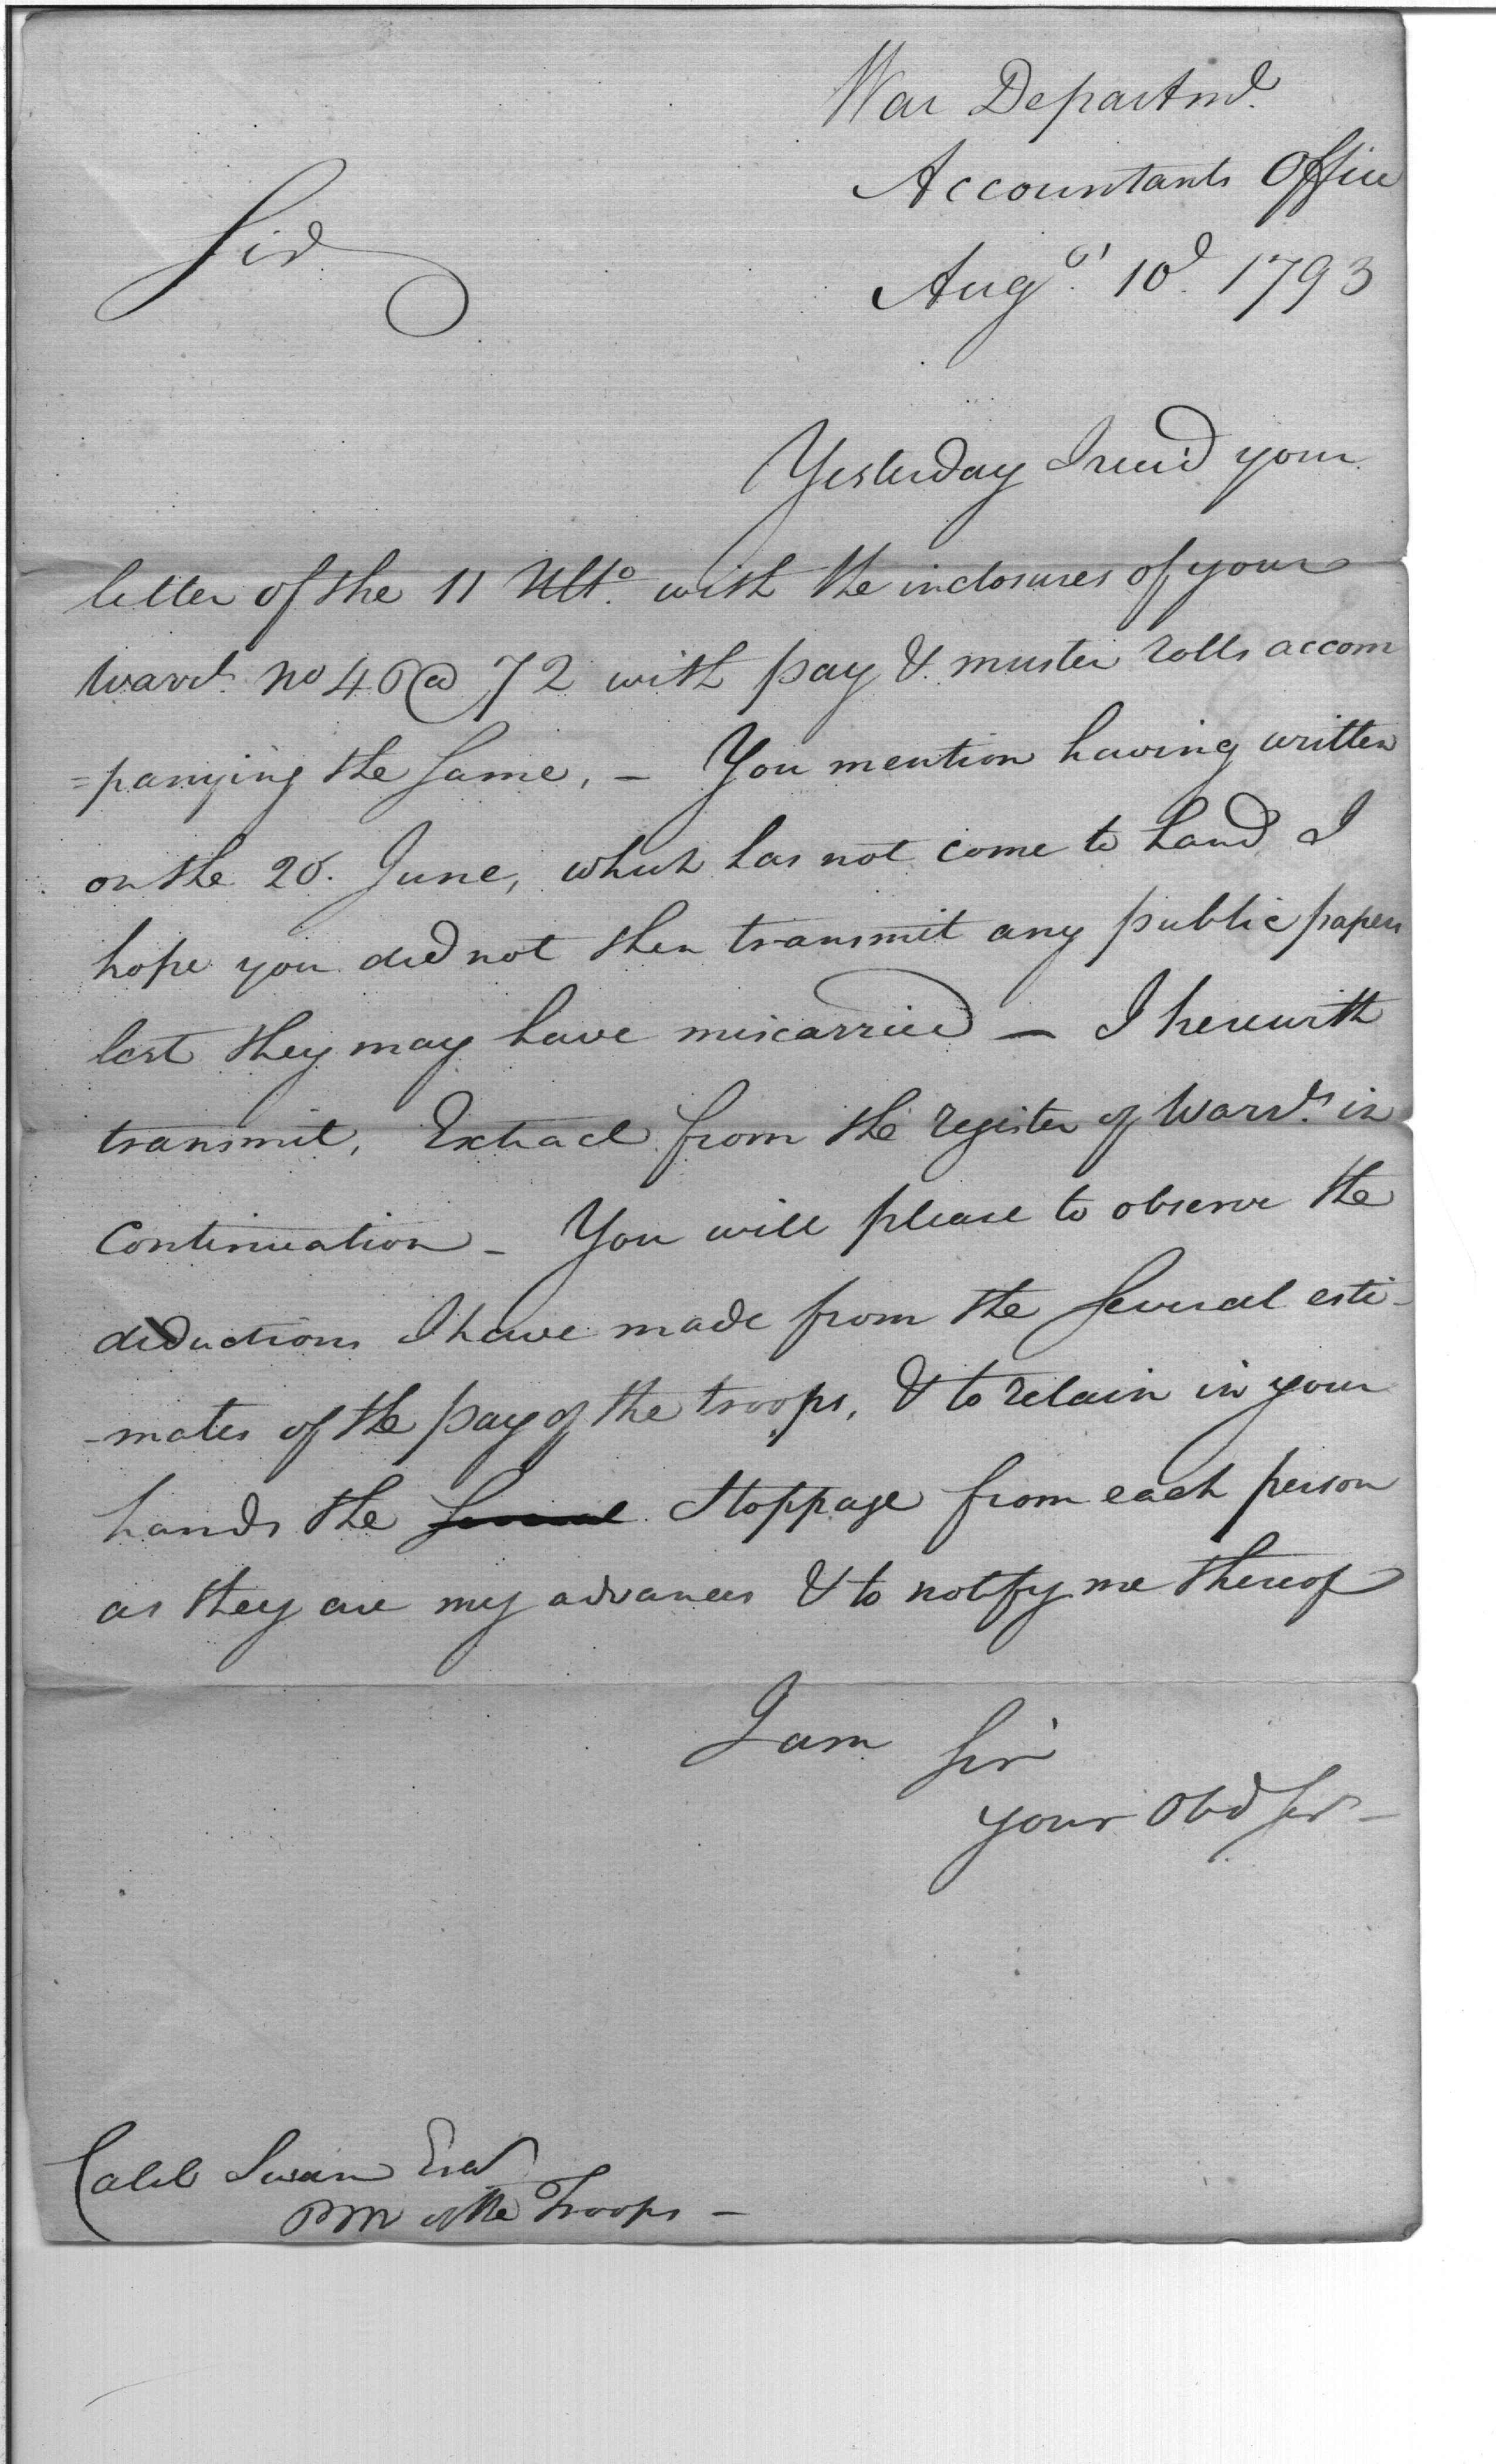 War Departmt.
Accountants Office
Sir
Augst. 10th. 1793
Yesterday I recd your
letter of the 11 Ulto. with the inclosures of your
warrts. no 46 @ 72 with pay & muster rolls accom
=panying the same, - You mention having written
on the 20. June, which has not come to hand I
hope you did not then transmit any public papers
lest they may have miscarried — I herewith
transmit, Extract from the register of Warrts. in
Continuation - You will please to observe the
deductions I have made from the several esti-
-mates of the pay of the troops, & to retain in your
hands the several Stoppage from each person
as they are my advances & to notify me thereof
I am Sir
your Obd Ser -
Caleb Swan Esqr
PM of the Troops -